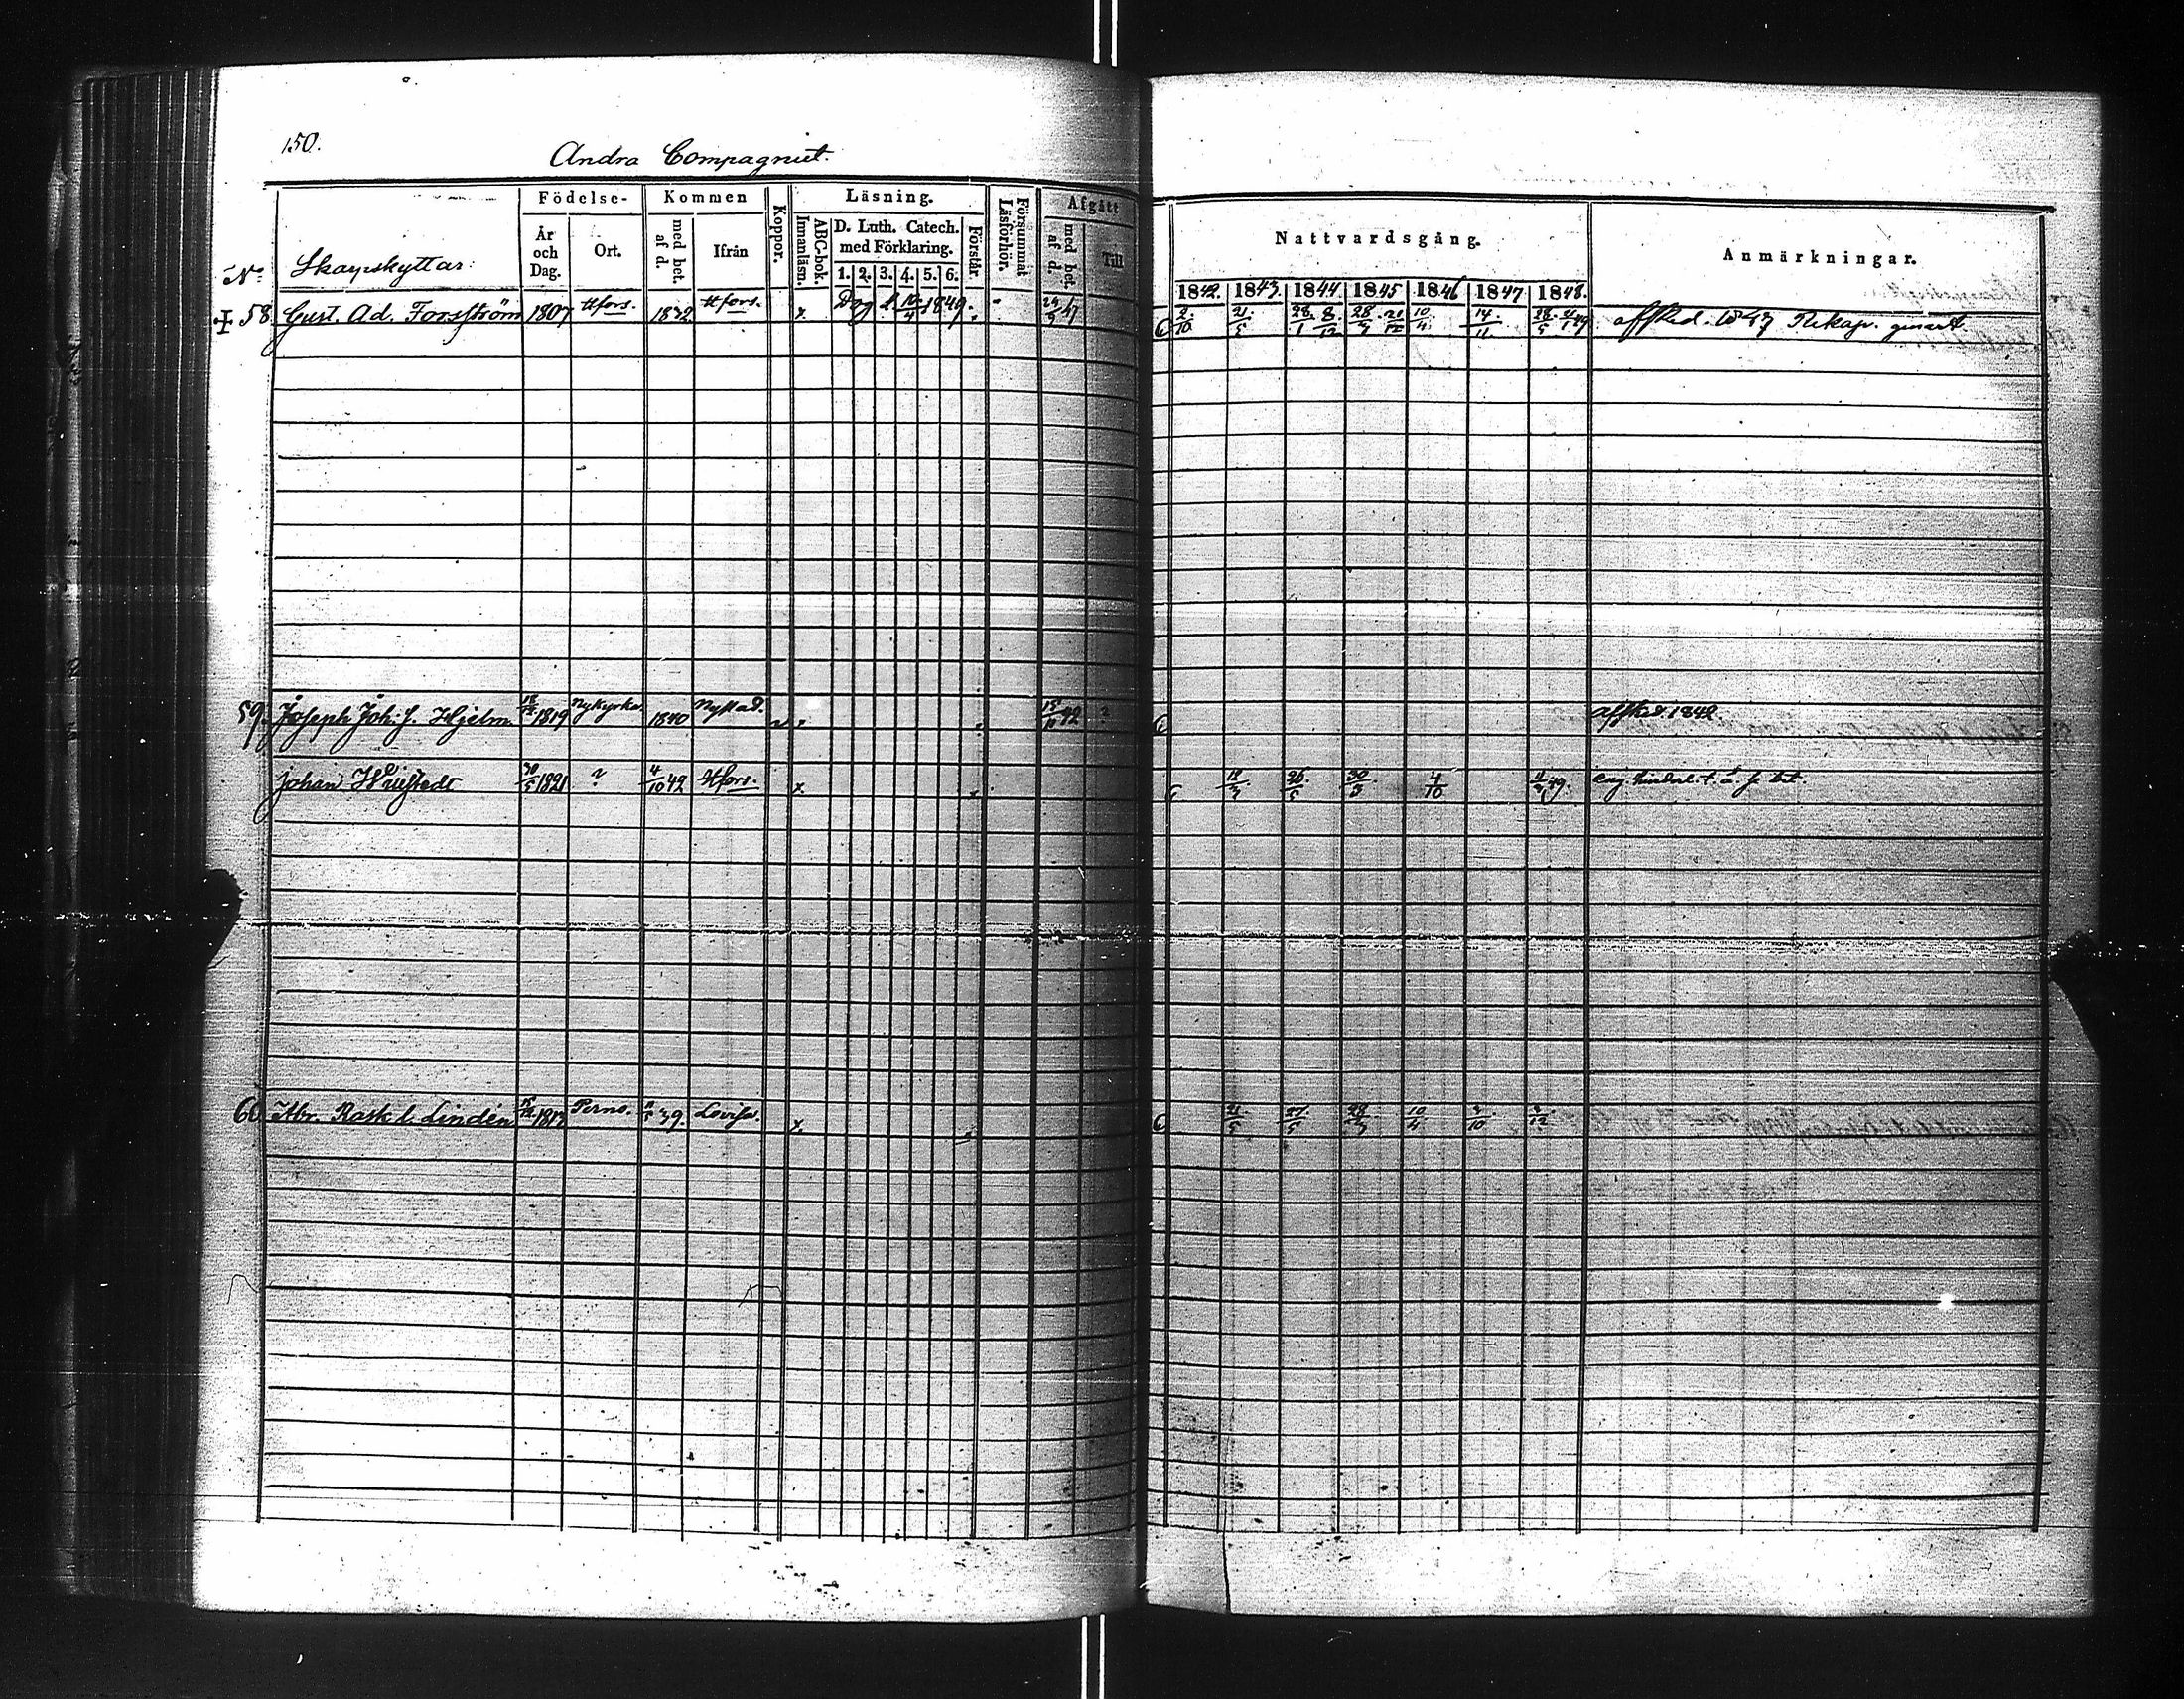 150.
Andra Compagniet.
Födelse- Kommen Läsning. Afgått
Nattvardsgång. Anmärkningar.
No. Skarpskyttar: År och Dag. Ort. med bet. af d. Ifrån Koppor. ABC-bok. Innanläsn. D. Luth. Catech. med Förklaring. Förstår. Försummat Läsförhör. med bet. af d. Till
1. 2. 3. 4. 5. 6.
1842. 1843. 1844 1845 1846 1847 1848.
58 Gust. Ad. Forsström 1807 Hfors. 1832. Hfors. x. Dog d. 10/4 1849. 29/5 47 6 2/10 21/5 28/1 8/12 28/9 21/12 10/4 14/11 28/5 21/1 49 affsked. 1847
59. Joseph Joh:s. Hjelm 18/12 1819 Nykyrka 1840 Nystad. 15/11 42 ? 6 affsked. 1842.
Johan 30/5 1821 ? 4/10 42 Hfors. x. 6 18/7 26/5 30/3 4/10 11/2 49.
60 Abr. Rask l. Lindén 1813 Perno. 39. Lovisa. x. 6 21/5 27/5 28/9 10/4 3/10 3/12